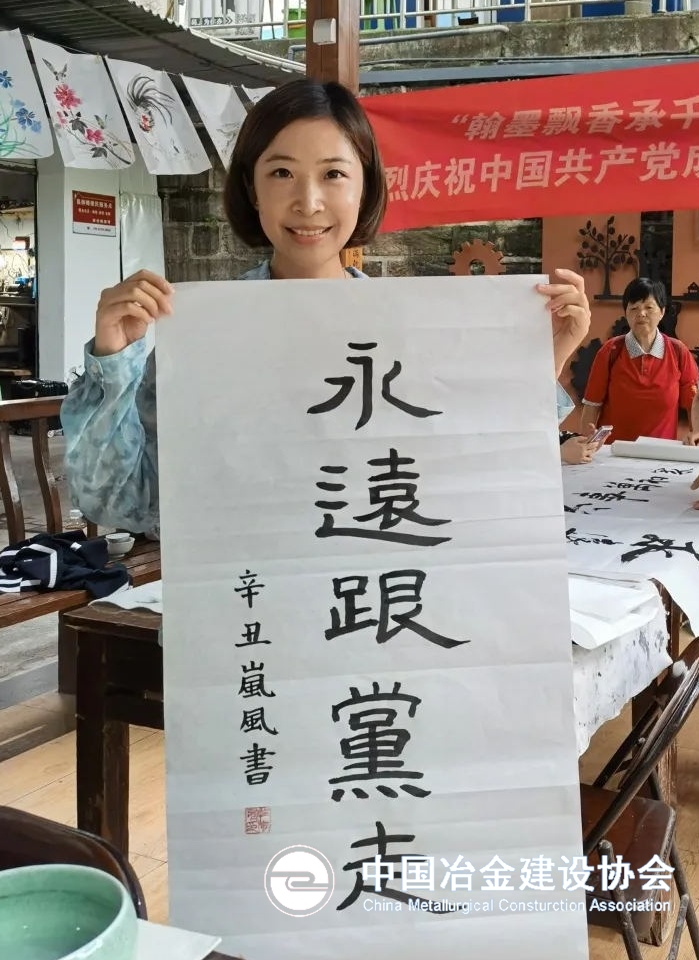 “翰墨飘香承千
烈庆祝中国共产党成
永遠跟黨走
辛丑嵐風書
中国冶金建设协会
China Metallurgical Consturction Association